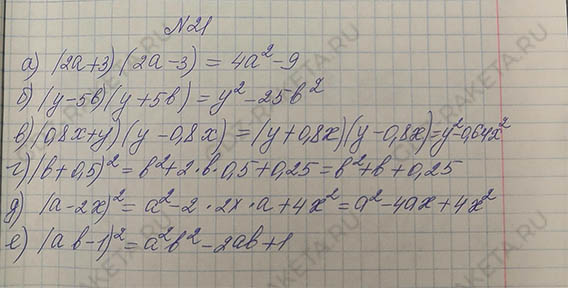 №21
а) (2a+3)(2a-3) = 4a²-9
б) (y-5b)(y+5b) = y²-25b²
в) (0,8x+y)(y-0,8x) = (y+0,8x)(y-0,8x)=y²-0,64x²
г) (b+0,5)² = b²+2·b·0,5+0,25 = b²+b+0,25
д) (a-2x)² = a²-2·2x·a+4x² = a²-4ax+4x²
е) (ab-1)² = a²b²-2ab+1